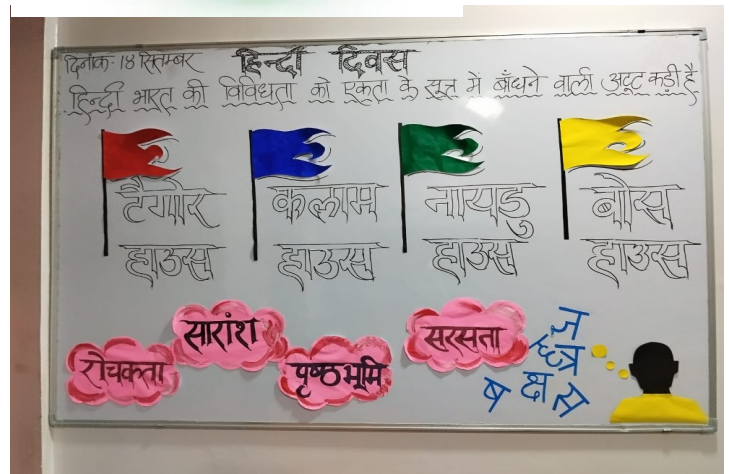 दिनांक:- 14 सितम्बर
हिन्दी दिवस
हिन्दी भारत की विविधता को एकता के सूत्र में बाँधने वाली अटूट कड़ी है
टैगोर हाउस
कलाम हाउस
नायडु हाउस
बोस हाउस
रोचकता
सारांश
पृष्ठभूमि
सरसता
ज
त्र
ष
क्ष
स